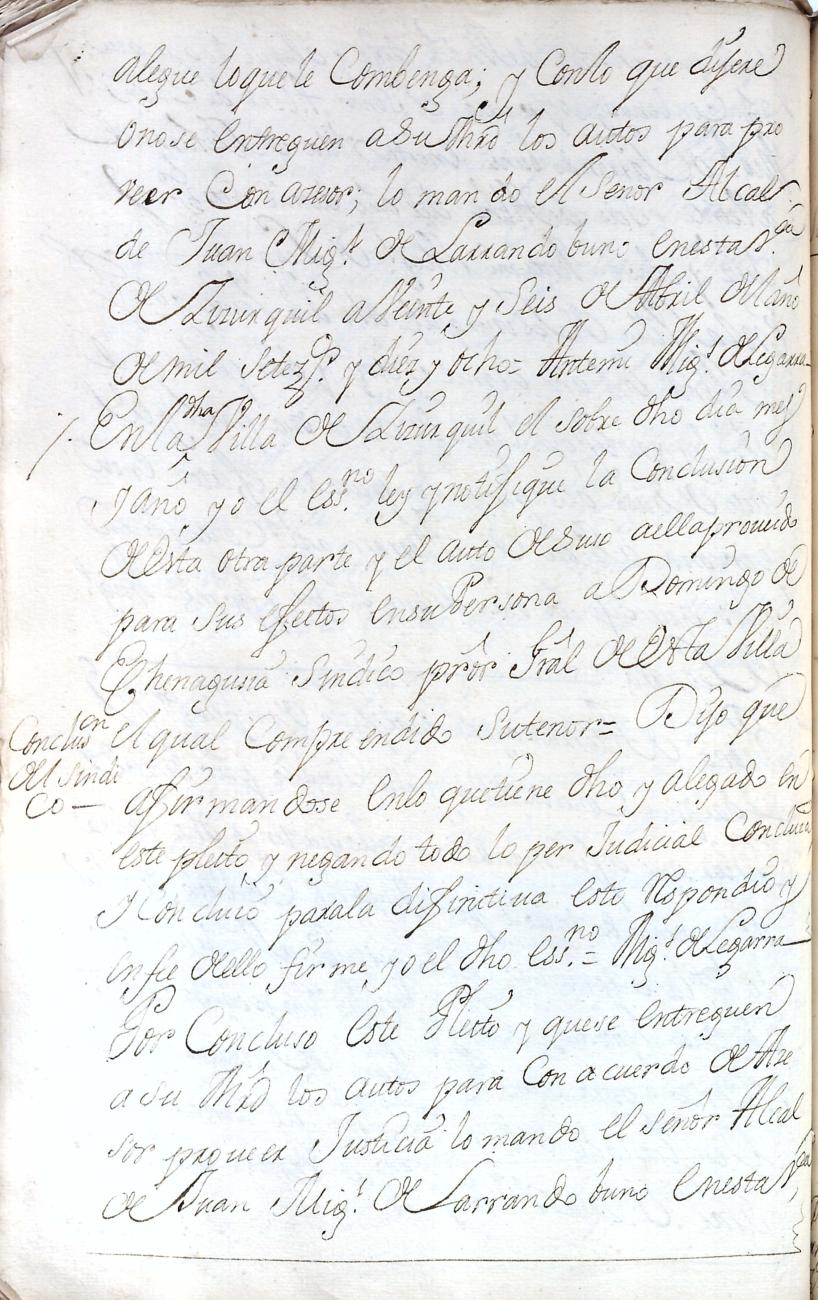 alegue loque le Combenga; y Conlo que dijere
o nose entreguen a Su Mrd los autos para pro
veer Con azesor; lo mando el Señor Alcal
de Juan Migl. de Larrando buno enesta Va.
de Lizurquil a Veinte y Seis de Abril del año
de mil setezs. y diez y ocho= Antemi Migl. de Legarra
En la dha Villa de Lizurquil el sobre dho dia mes
y año yo el essno. ley y notifique la Conclusion
de esta otra parte y el auto de Suso aella proueido
para sus efectos ensu Persona a Domingo de
Echenagusia Sindico pror Gral de Esta Villa
Conclusen
del sindi
co—
el qual Compreendido sutenor= Dijo que
afirmandose enlo quetiene dho, y alegado en
este pleito, y negando todo lo per Judicial Concluia
y Concluio parala difinitiua esto Respondio y
enfee dello firme, yo el dho essno.= Migl. de Legarra
Por Concluso este Pleito y quese entreguen
a su Mrd los autos para Con acuerdo de Aze
sor proueer Justicia lo mando el señor Alcal
de Juan Migl. de Larrando buno enesta Va